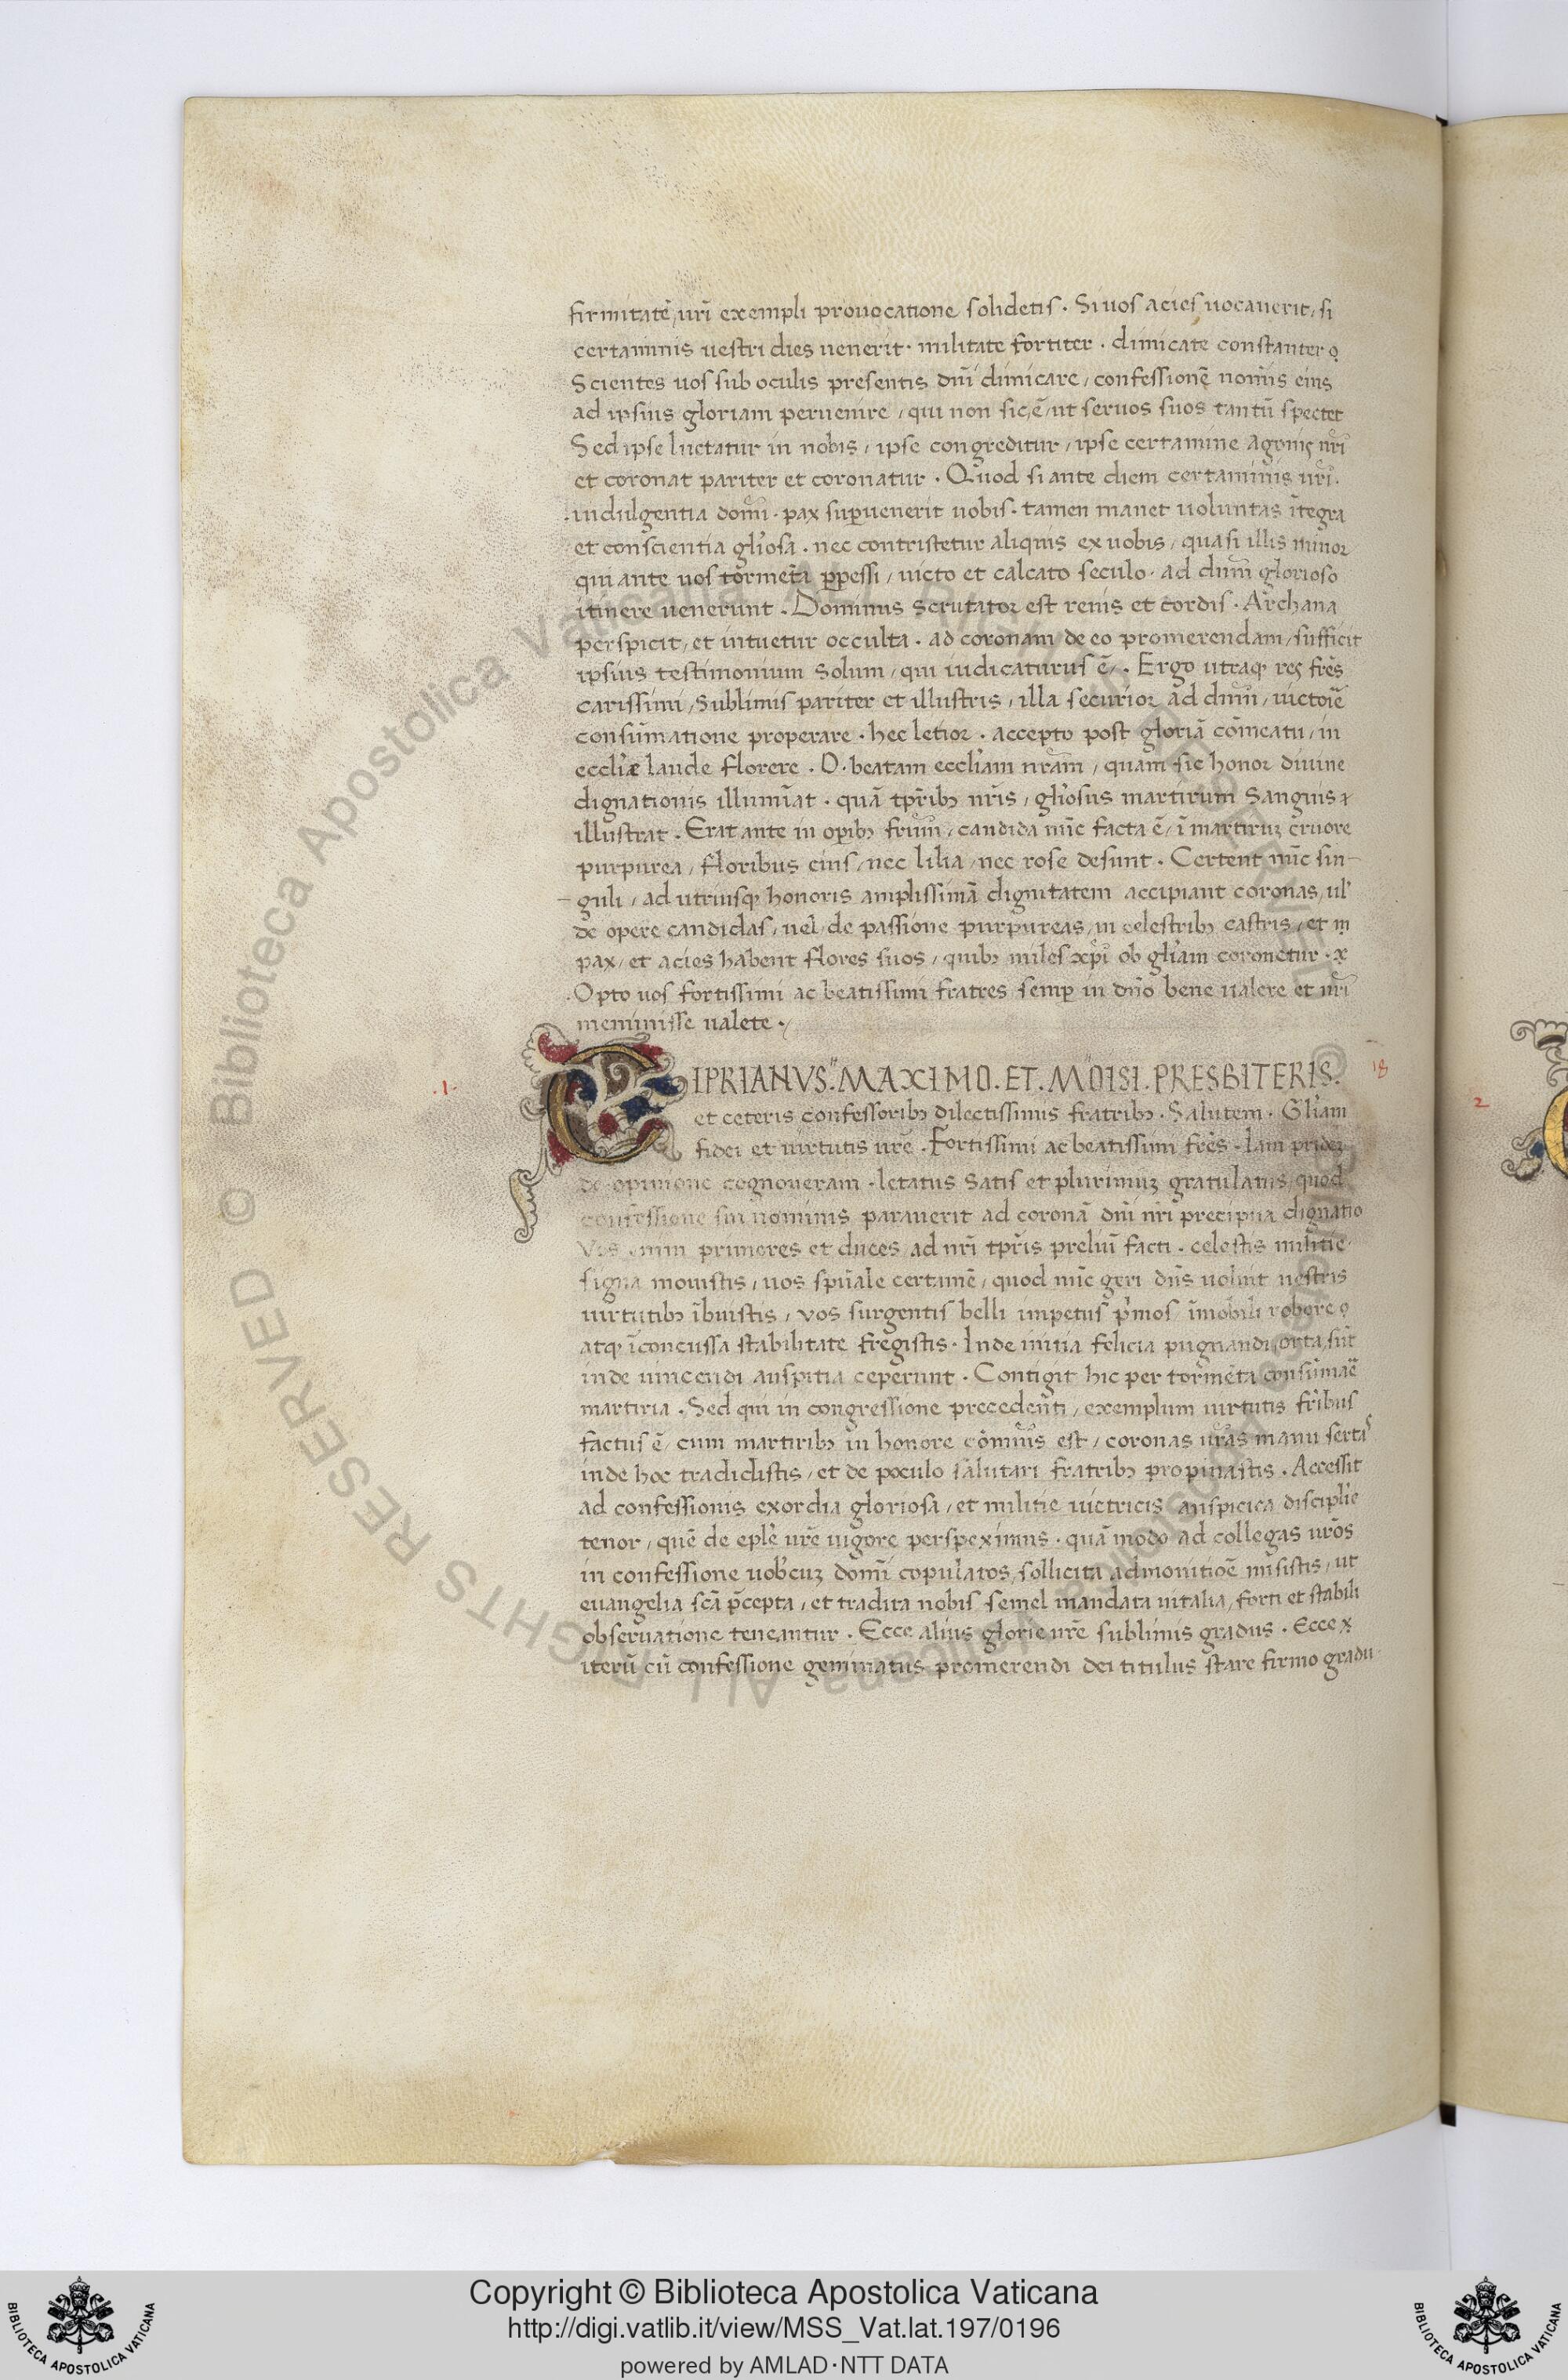 firmitatē, ur̄i exempli prouocatione solidetis. Si uos acies uocauerit, si
certaminis uestri dies uenerit. militate fortiter. dimicate constanter
Scientes uos sub oculis presentis dn̄i dimicare, confessionē nom̄is eius
ad ipsius gloriam peruenire, qui non sic ē, ut seruos suos tantū spectet
Sed ipse luctatur in nobis, ipse congreditur, ipse certamine agonis nr̄i
et coronat pariter et coronatur. Quod si ante diem certaminis ur̄i.
indulgentia domī. pax suꝑuenerit uobis. tamen manet uoluntas ītegra
et conscientia gl'iosa. nec contristetur aliquis ex uobis, quasi illis minor
qui ante uos tormēta ꝑpessi, uicto et calcato seculo. ad dnū̄m glorioso
itinere uenerunt. Dominus scrutator est renis et cordis. Archana
perspicit, et intuetur occulta. ad coronam de eo promerendam, sufficit
ipsius testimonium solum, qui iudicaturus ē. Ergo utraqꝫ res fr̄es
carissimi, sublimis pariter et illustris, illa securior ad dnū̄m, uictoīe
consūmatione properare. hec letior. accepto post gloriā cōmeatu, in
eccl'iæ laude florere. O. beatam eccl'iam nr̄am, quam sic honor diuine
dignationis illumīat. quā tp̄ribꝫ nr̄is, gl'iosus martirum sanguis
illustrat. Erat ante in oꝑibꝫ frūm, candida nūc facta ē, ī martiruꝫ cruore
purpurea, floribus eius, nec lilia, nec rose desunt. Certent nūc sin-
-guli, ad utriusqꝫ honoris amplissimā dignitatem accipiant coronas, ul'
de opere candidas, uel de passione purpureas, in celestribꝫ castris, et
pax, et acies habent flores suos, quibꝫ miles xp̄i ob gl'iam coronetur.
Opto uos fortissimi ac beatissimi fratres semꝑ in dn̄o bene ualere et nr̄i
meminisse ualete.
CIPRIANVS. MAXIMO. ET. MOISI. PRESBITERIS.
.1. 18
et ceteris confessoribꝫ dilectissimis fratribꝫ. Salutem. Gl'iam
fidei et uirtutis ur̄e. Fortissimi ac beatissimi fr̄es. Iam prideꝫ
de opinione cognoueram. letatus satis et plurimuꝫ gratulatus, quod
confessione sui nominis parauerit ad coronā dn̄i nr̄i precipua dignatio
Vos enim primores et duces, ad nr̄i tp̄ris preliuī facti. celestis militie
signa mouistis, uos spūale certamē, quod nūc geri dn̄s uoluit uestris
uirtutibꝫ ībuistis, vos surgentis belli impetus p'mos īmobili robore
atqꝫ īconcussa stabilitate fregistis. Inde initia felicia pugnandi orta sūt
inde uincendi auspitia ceperunt. Contigit hic per tormēta consūmaē
martiria. Sed qui in congressione precedenti, exemplum uirtutis fr̄ibus
factus ē, cum martiribꝫ in honore cōmuīs est, coronas ur̄as manu sertas
inde hoc tradidistis, et de poculo salutari fratribꝫ propinastis. Accessit
ad confessionis exordia gloriosa, et militie uictricis auspicica discipl'ie
tenor, quē de epl'e ur̄e uigore perspeximus. quā modo ad collegas ur̄os
in confessione uob'cuꝫ domī copulatos, sollicita admonitioē misistis, ut
euangelia scā p̄cepta, et tradita nobis semel mandata uitalia, forti et stabili
obseruatione teneantur. Ecce alius glorie ur̄e sublimis gradus. Ecce
iterū cū confessione geminatus promerendi dei titulus stare firmo gradu
2
Copyright © Biblioteca Apostolica Vaticana
http://digi.vatlib.it/view/MSS_Vat.lat.197/0196
powered by AMLAD·NTT DATA
BIBLIOTECA APOSTOLICA VATICANA
BIBLIOTECA APOSTOLICA VATICANA